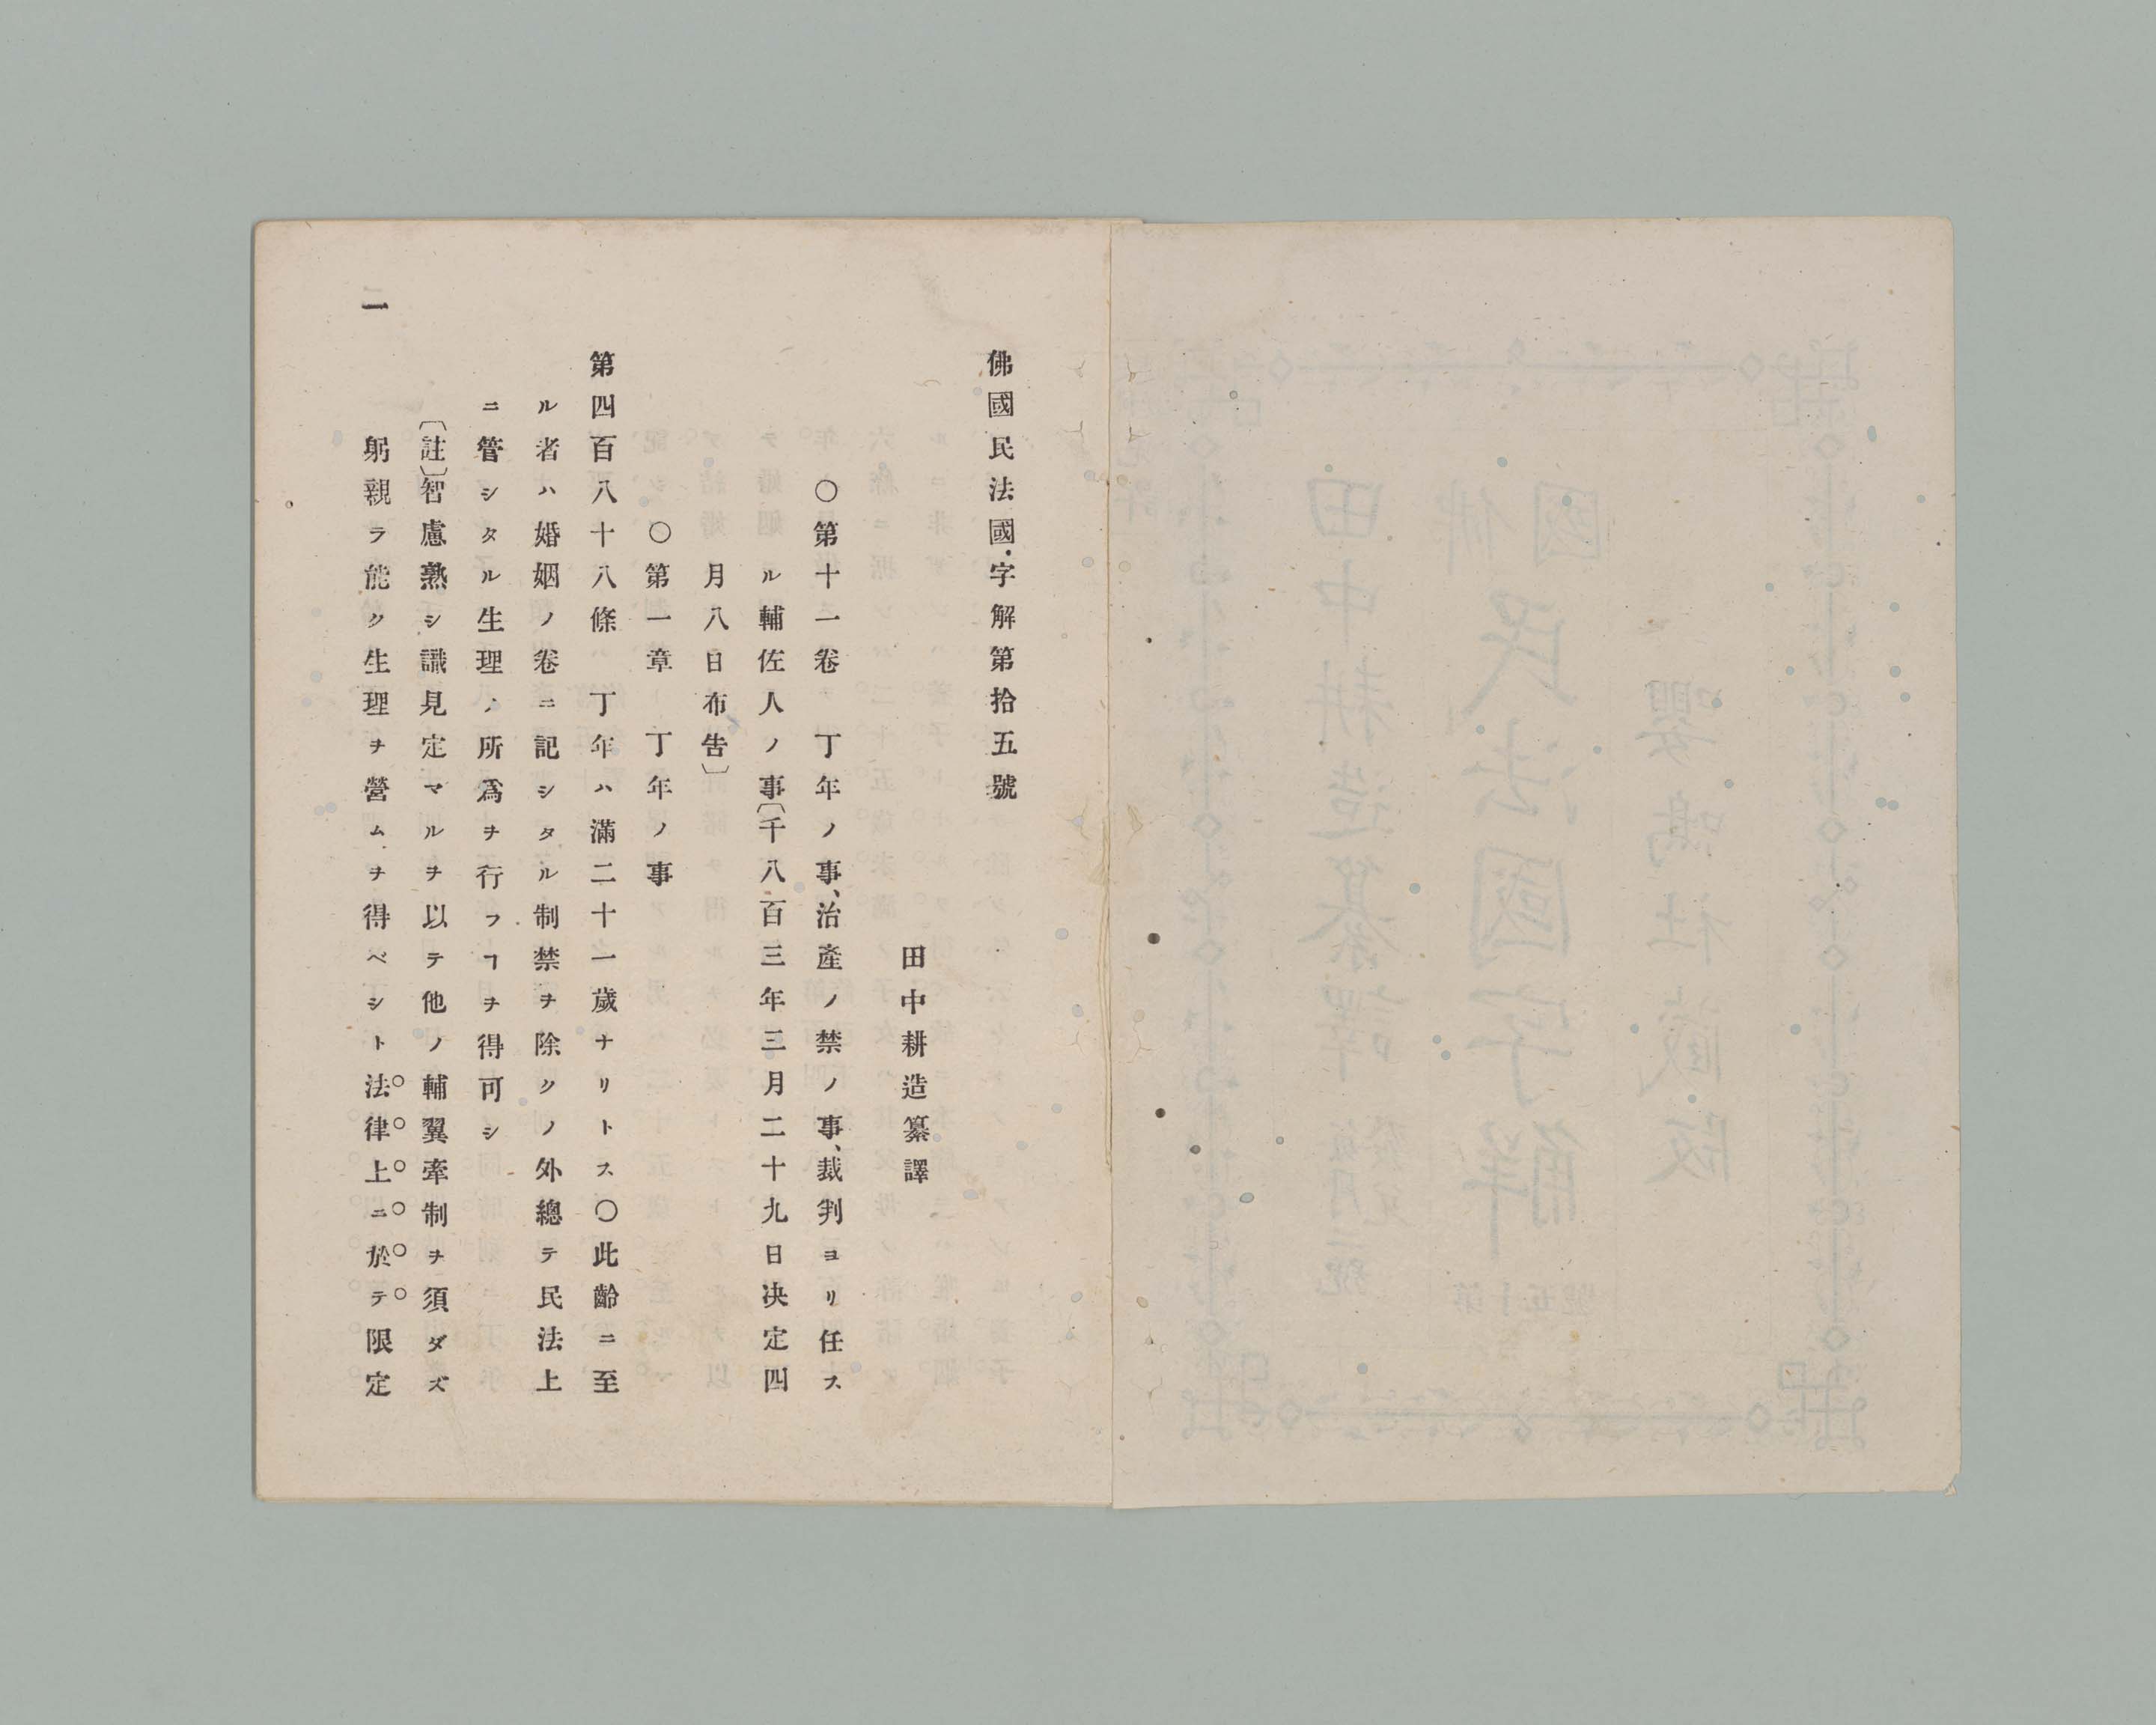 佛國民法國字解第拾五號
田中耕造纂譯
○第十一卷　丁年ノ事、治產ノ禁ノ事、裁判ヨリ任ス
ル輔佐人ノ事〔千八百三年三月二十九日決定四
月八日布告〕
○第一章　丁年ノ事
第四百八十八條　丁年ハ滿二十一歲ナリトス○此齡ニ至
ル者ハ婚姻ノ卷ニ記シタル制禁ヲ除クノ外總テ民法上
ニ管シタル生理ノ所爲ヲ行フヿヲ得可シ
〔註〕智慮熟シ識見定マルヲ以テ他ノ輔翼牽制ヲ須ダズ
躬親ラ能ク生理ヲ營ムヲ得ベシト法律上ニ於テ限定
一